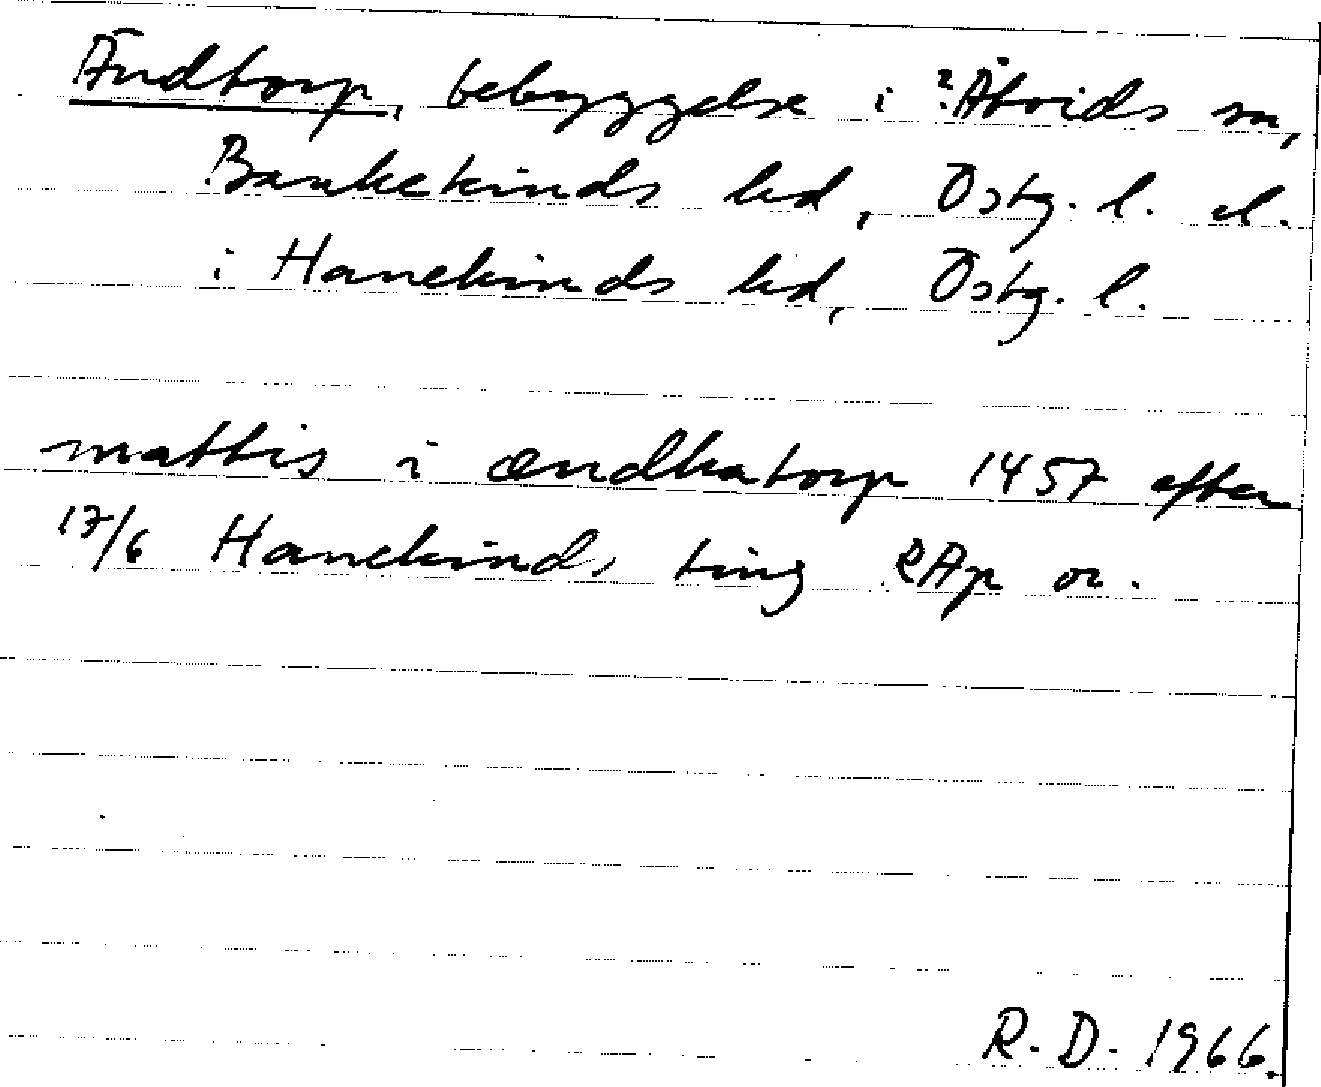 Ändtorp, bebyggelse i ?Åtvids sn,
Bankekinds hd, Östg. l. el.
i Hanekinds hd, Östg. l.
mattis i ændhatorp 1457 efter
17/6 Hanekinds ting RAp or.
R. D. 1966.